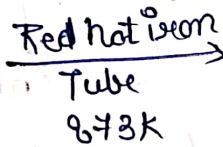 Red hot iron
Tube
873K